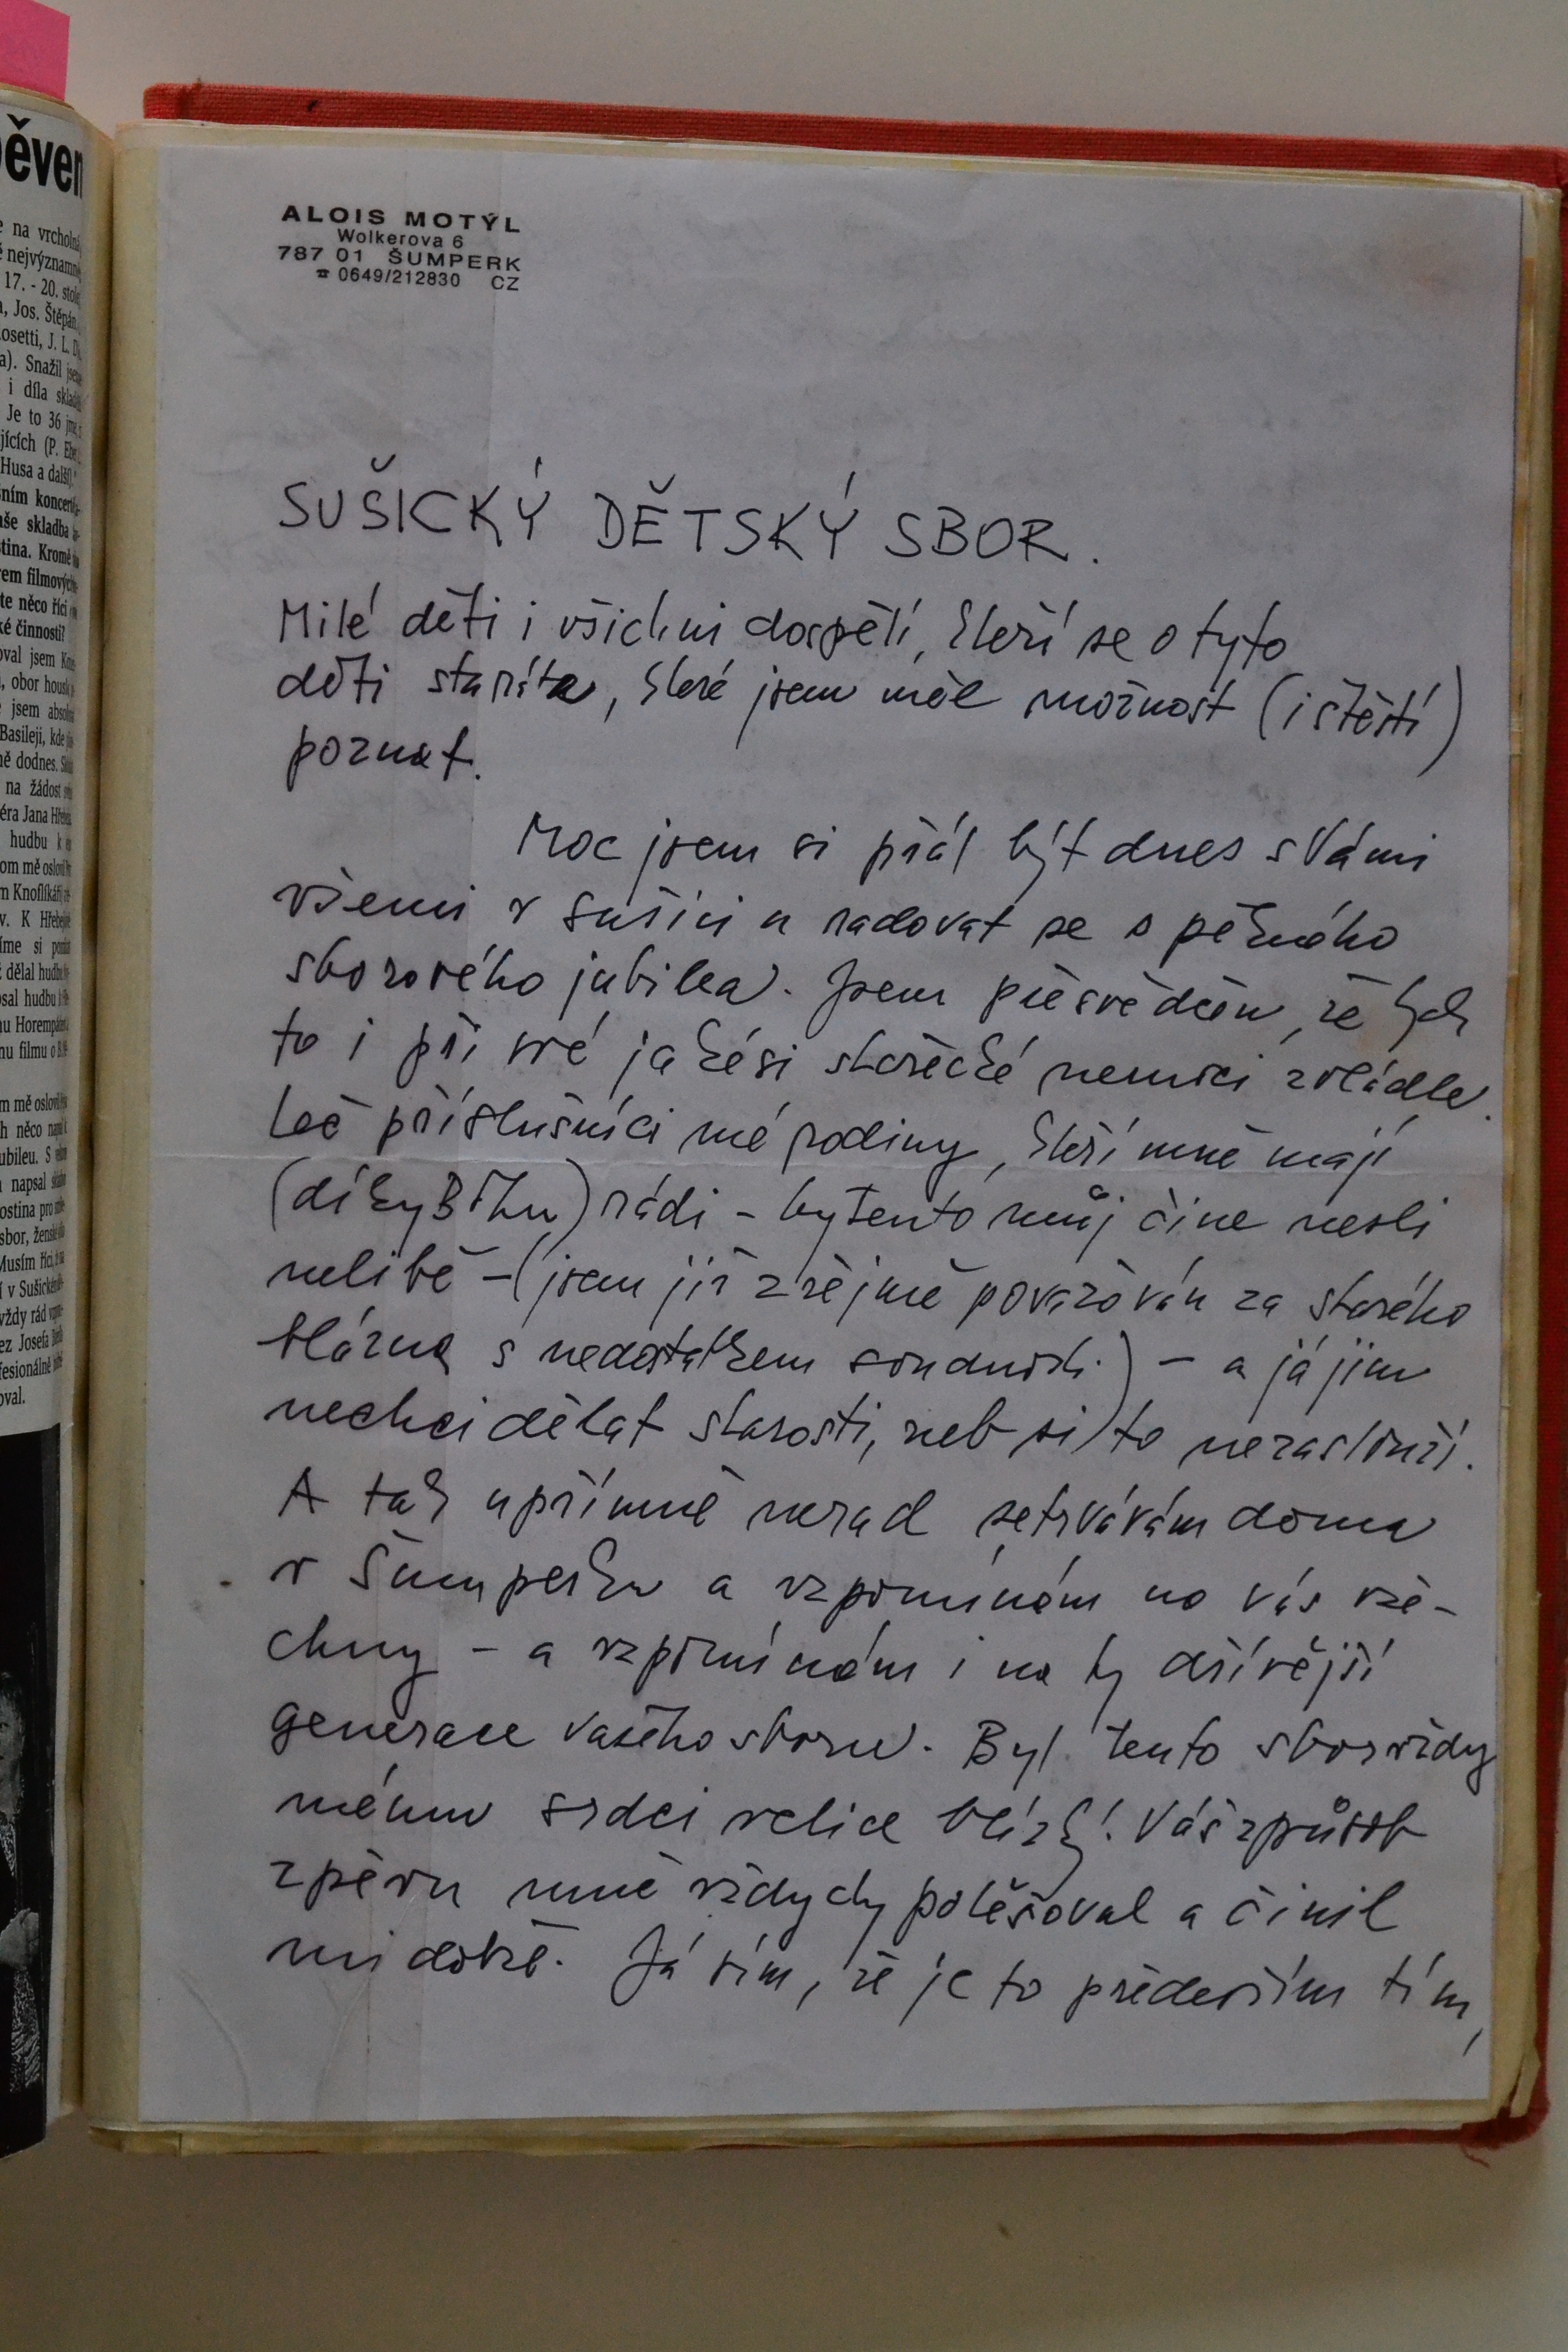 ěven
e na vrcholn
ě nejvýznamně
17. - 20. stole
, Jos. Štěpán
osetti, J. L. D
a). Snažil jsem
i díla sklad
Je to 36 jm
jících (P. Eben
Husa a další)."
ním koncert
aše skladba
tina. Kromě
rem filmových
te něco říci
ké činnosti?
oval jsem Kon
, obor housl
jsem absol
Basileji, kde
ně dodnes.
na žádost
éra Jana Hřebe
hudbu k
om mě oslovil
m Knoflíkáři
v. K Hřebej
íme si poslu
dělal hudbu
sal hudbu
u Horempádem
nu filmu o
m mě oslovil
h něco nap
ubileu. S
napsal
ostina pro
sbor, žensk
Musím říci,
í v Sušické
vždy rád
ez Josefa
fesionálně
oval.
ALOIS MOTÝL
Wolkerova 6
787 01 ŠUMPERK
☎ 0649/212830 CZ
SUŠICKÝ DĚTSKÝ SBOR.
Milé děti i všichni dospělí, kteří se o tyto
děti staráte, které jsem měl možnost (i štěstí)
poznat.
Moc jsem si přál být dnes s Vámi
všemi v Sušici a radovat se s pěkného
sborového jubilea. Jsem přesvědčen, že bych
to i při své jakési stařecké nemoci zvládl.
Leč příslušníci mé rodiny, kteří mně mají
(díky Bohu) rádi - by tento můj čin nesli
nelibě - (jsem již zřejmě považován za starého
blázna s nedostatkem soudnosti.) - a já jim
nechci dělat starosti, neb si to nezaslouží.
A tak upřímně nerad setrvávám doma
v Šumperku a vzpomínám na vás vše-
chny - a vzpomínám i na ty dřívější
generace vašeho sboru. Byl tento sbor vždy
mému srdci velice blízký. Váš způsob
zpěvu mně vždycky potěšoval a činil
mi dobře. Já vím, že je to především tím,